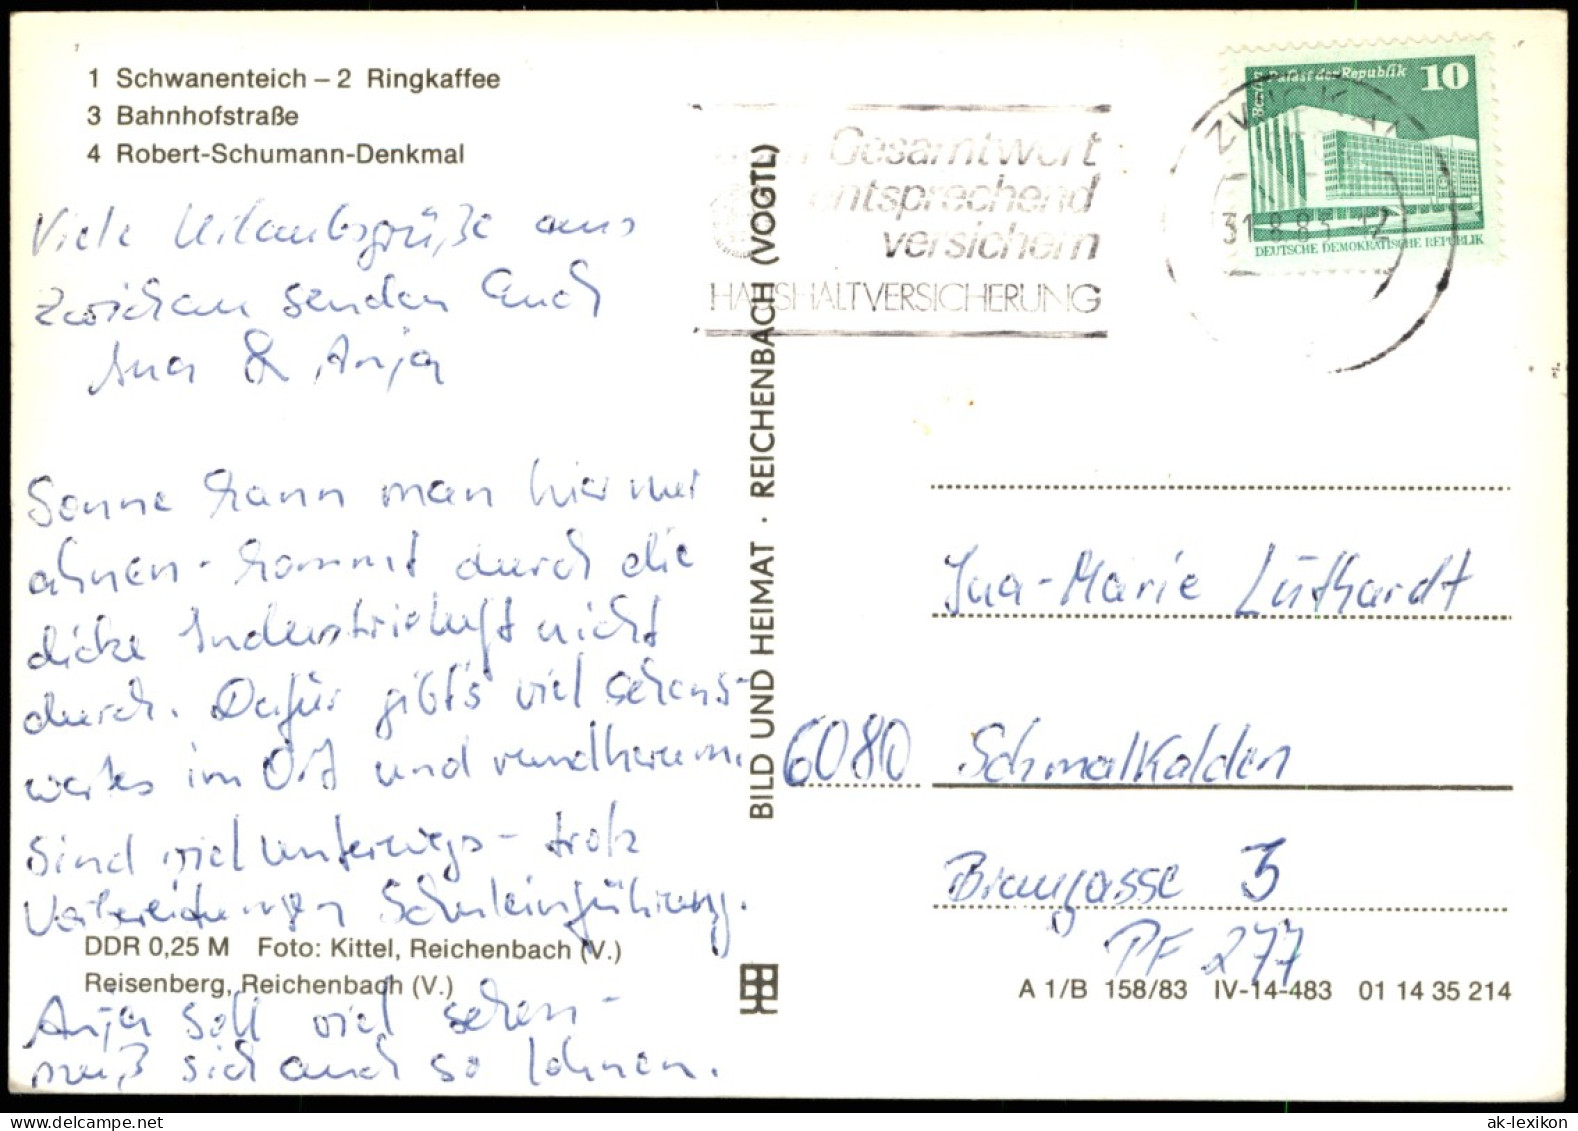 1 Schwanenteich – 2 Ringkaffee
3 Bahnhofstraße
4 Robert-Schumann-Denkmal
Viele Urlaubsgrüße aus
Zwickau senden Euch
Ina & Anja
Sonne kann man hier nur
ahnen - kommt durch die
dicke Industrieluft nicht
durch. Dafür gibt's viel sehens-
wertes im Ort und rundherum.
Sind viel unterwegs - trotz
Vorbereitungen Schuleinführung.
Anja soll viel sehen -
muß sich auch so lohnen.
DDR 0,25 M Foto: Kittel, Reichenbach (V.)
Reisenberg, Reichenbach (V.)
BILD UND HEIMAT · REICHENBACH (VOGTL)
Gesamtwert
entsprechend
versichern
HAUSHALTVERSICHERUNG
ZWICKAU
31.8.83-12
Berlin, Palast der Republik 10
DEUTSCHE DEMOKRATISCHE REPUBLIK
Ina-Marie Luthardt
6080 Schmalkalden
Braugasse 3
PF 277
A 1/B 158/83 IV-14-483 01 14 35 214
ak-lexikon